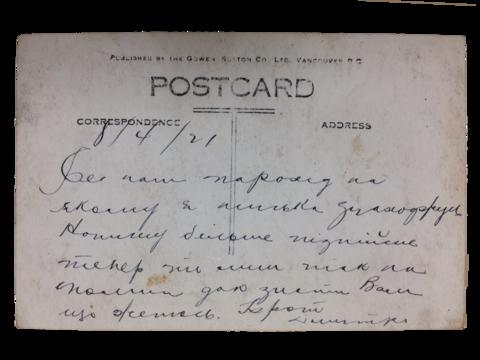 PUBLISHED BY THE GOWEN SUTTON CO. LTD. VANCOUVER B.C.
POSTCARD
CORRESPONDENCE ADDRESS
8/4/21
Се наш пароход на
якому я знаходжусь
Напишу більше пізнійше
тепер то лиш так на
даю знати Вам
що